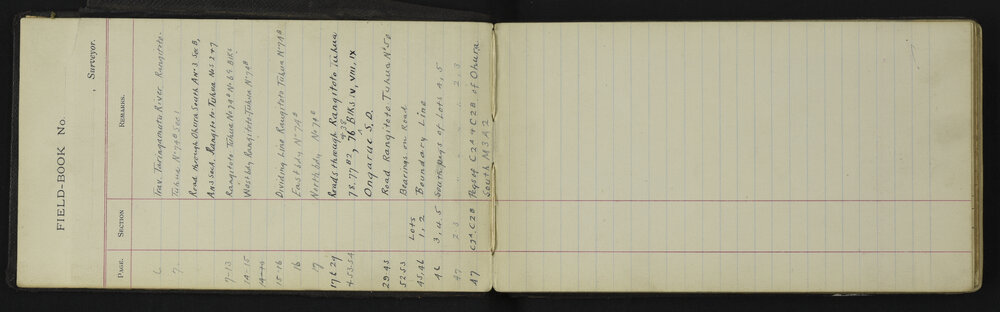 FIELD-BOOK No.
, Surveyor.
PAGE. SECTION REMARKS.
6 Trav. Taringamotu River Rangitoto-
7 Tuhua No 74B Sec 1
Road through Ohura South A No 3 Sec B,
And Sect. Rangitoto-Tuhua Nos 2 & 7
7-13 Rangitoto Tuhua No 74B No 69 Blks
14-15 West bdy Rangitoto-Tuhua No 74B
14-14
15-16 Dividing Line Rangitoto Tuhua No 74B
16 East bdy No 74B
17 North bdy No 74B
17 to 29 Roads through Rangitoto Tuhua
& 53-54 78, 77 B2, 76 & 38 Blks IV, VIII, IX
Ongarue S.D.
29-45 Road Rangitoto Tuhua No 50
52-53 Bearings on Road
45,46 Lots 1, 2 Boundary Line
46 3, 4, 5 South pegs of Lots 4, 5
47 2 3 " " " 2, 3
47 C2A C2B Pegs of C2A & C2B of Ohura
South M3A2